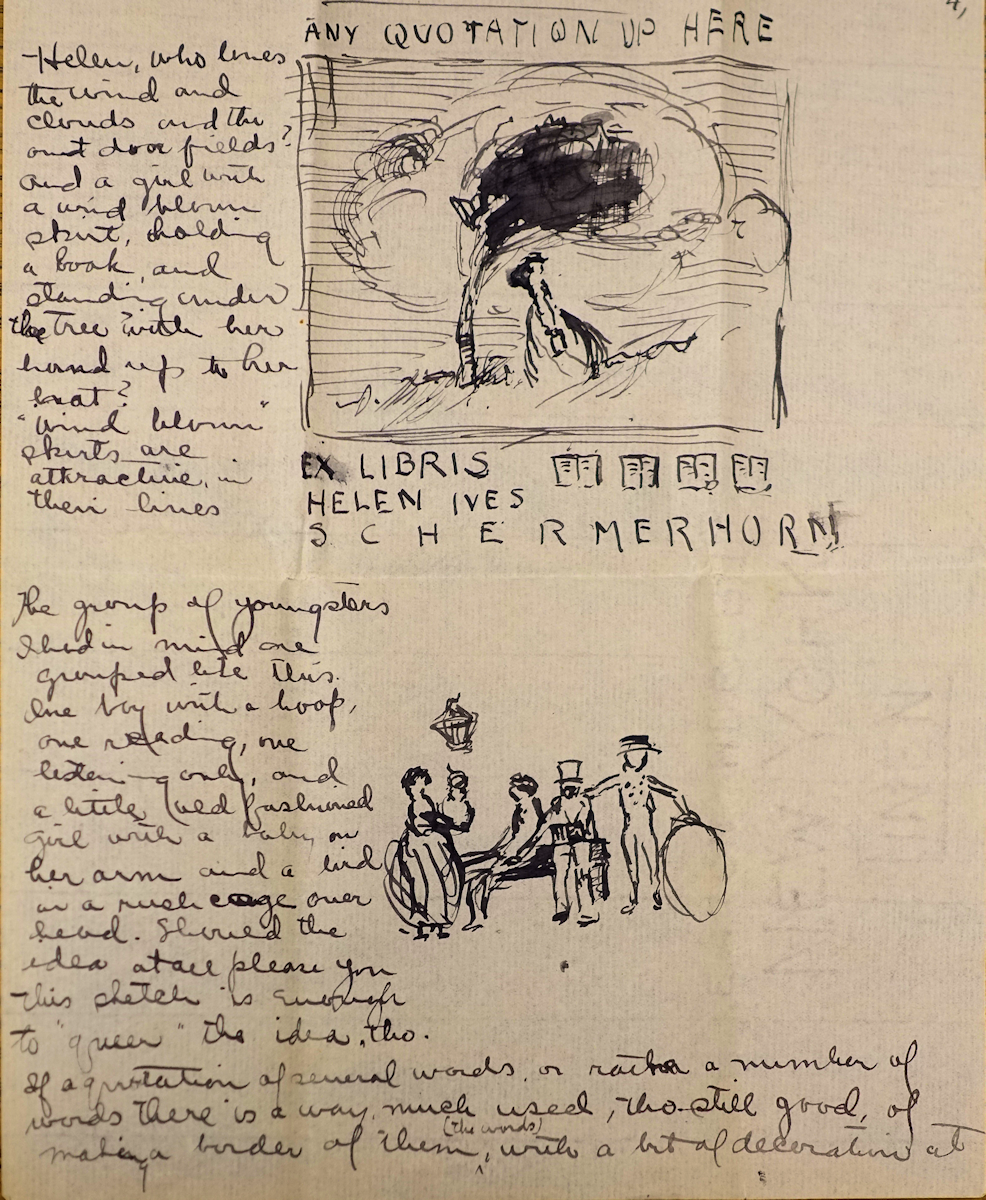 4,
ANY QUOTATION UP HERE
Helen, who loves
the wind and
clouds and the
out door fields?
and a girl with
a wind blown
skirt, holding
a book, and
standing under
the tree? with her
hand up to her
hat?
"wind blown"
skirts are
attractive, in
their lines
EX LIBRIS
HELEN IVES
SCHERMERHORN
The group of youngsters
I had in mind are
grouped like this.
One boy with a hoop,
one reading, one
listening only, and
a little old fashioned
girl with a baby on
her arm and a bird
in a rush cage over
head. Should the
idea at all please you
this sketch is enough
to "queer" the idea, tho.
If a quotation of several words, or rather a number of
words there is a way, much used, tho still good, of
making a border of them, (the words) with a bit of decoration at